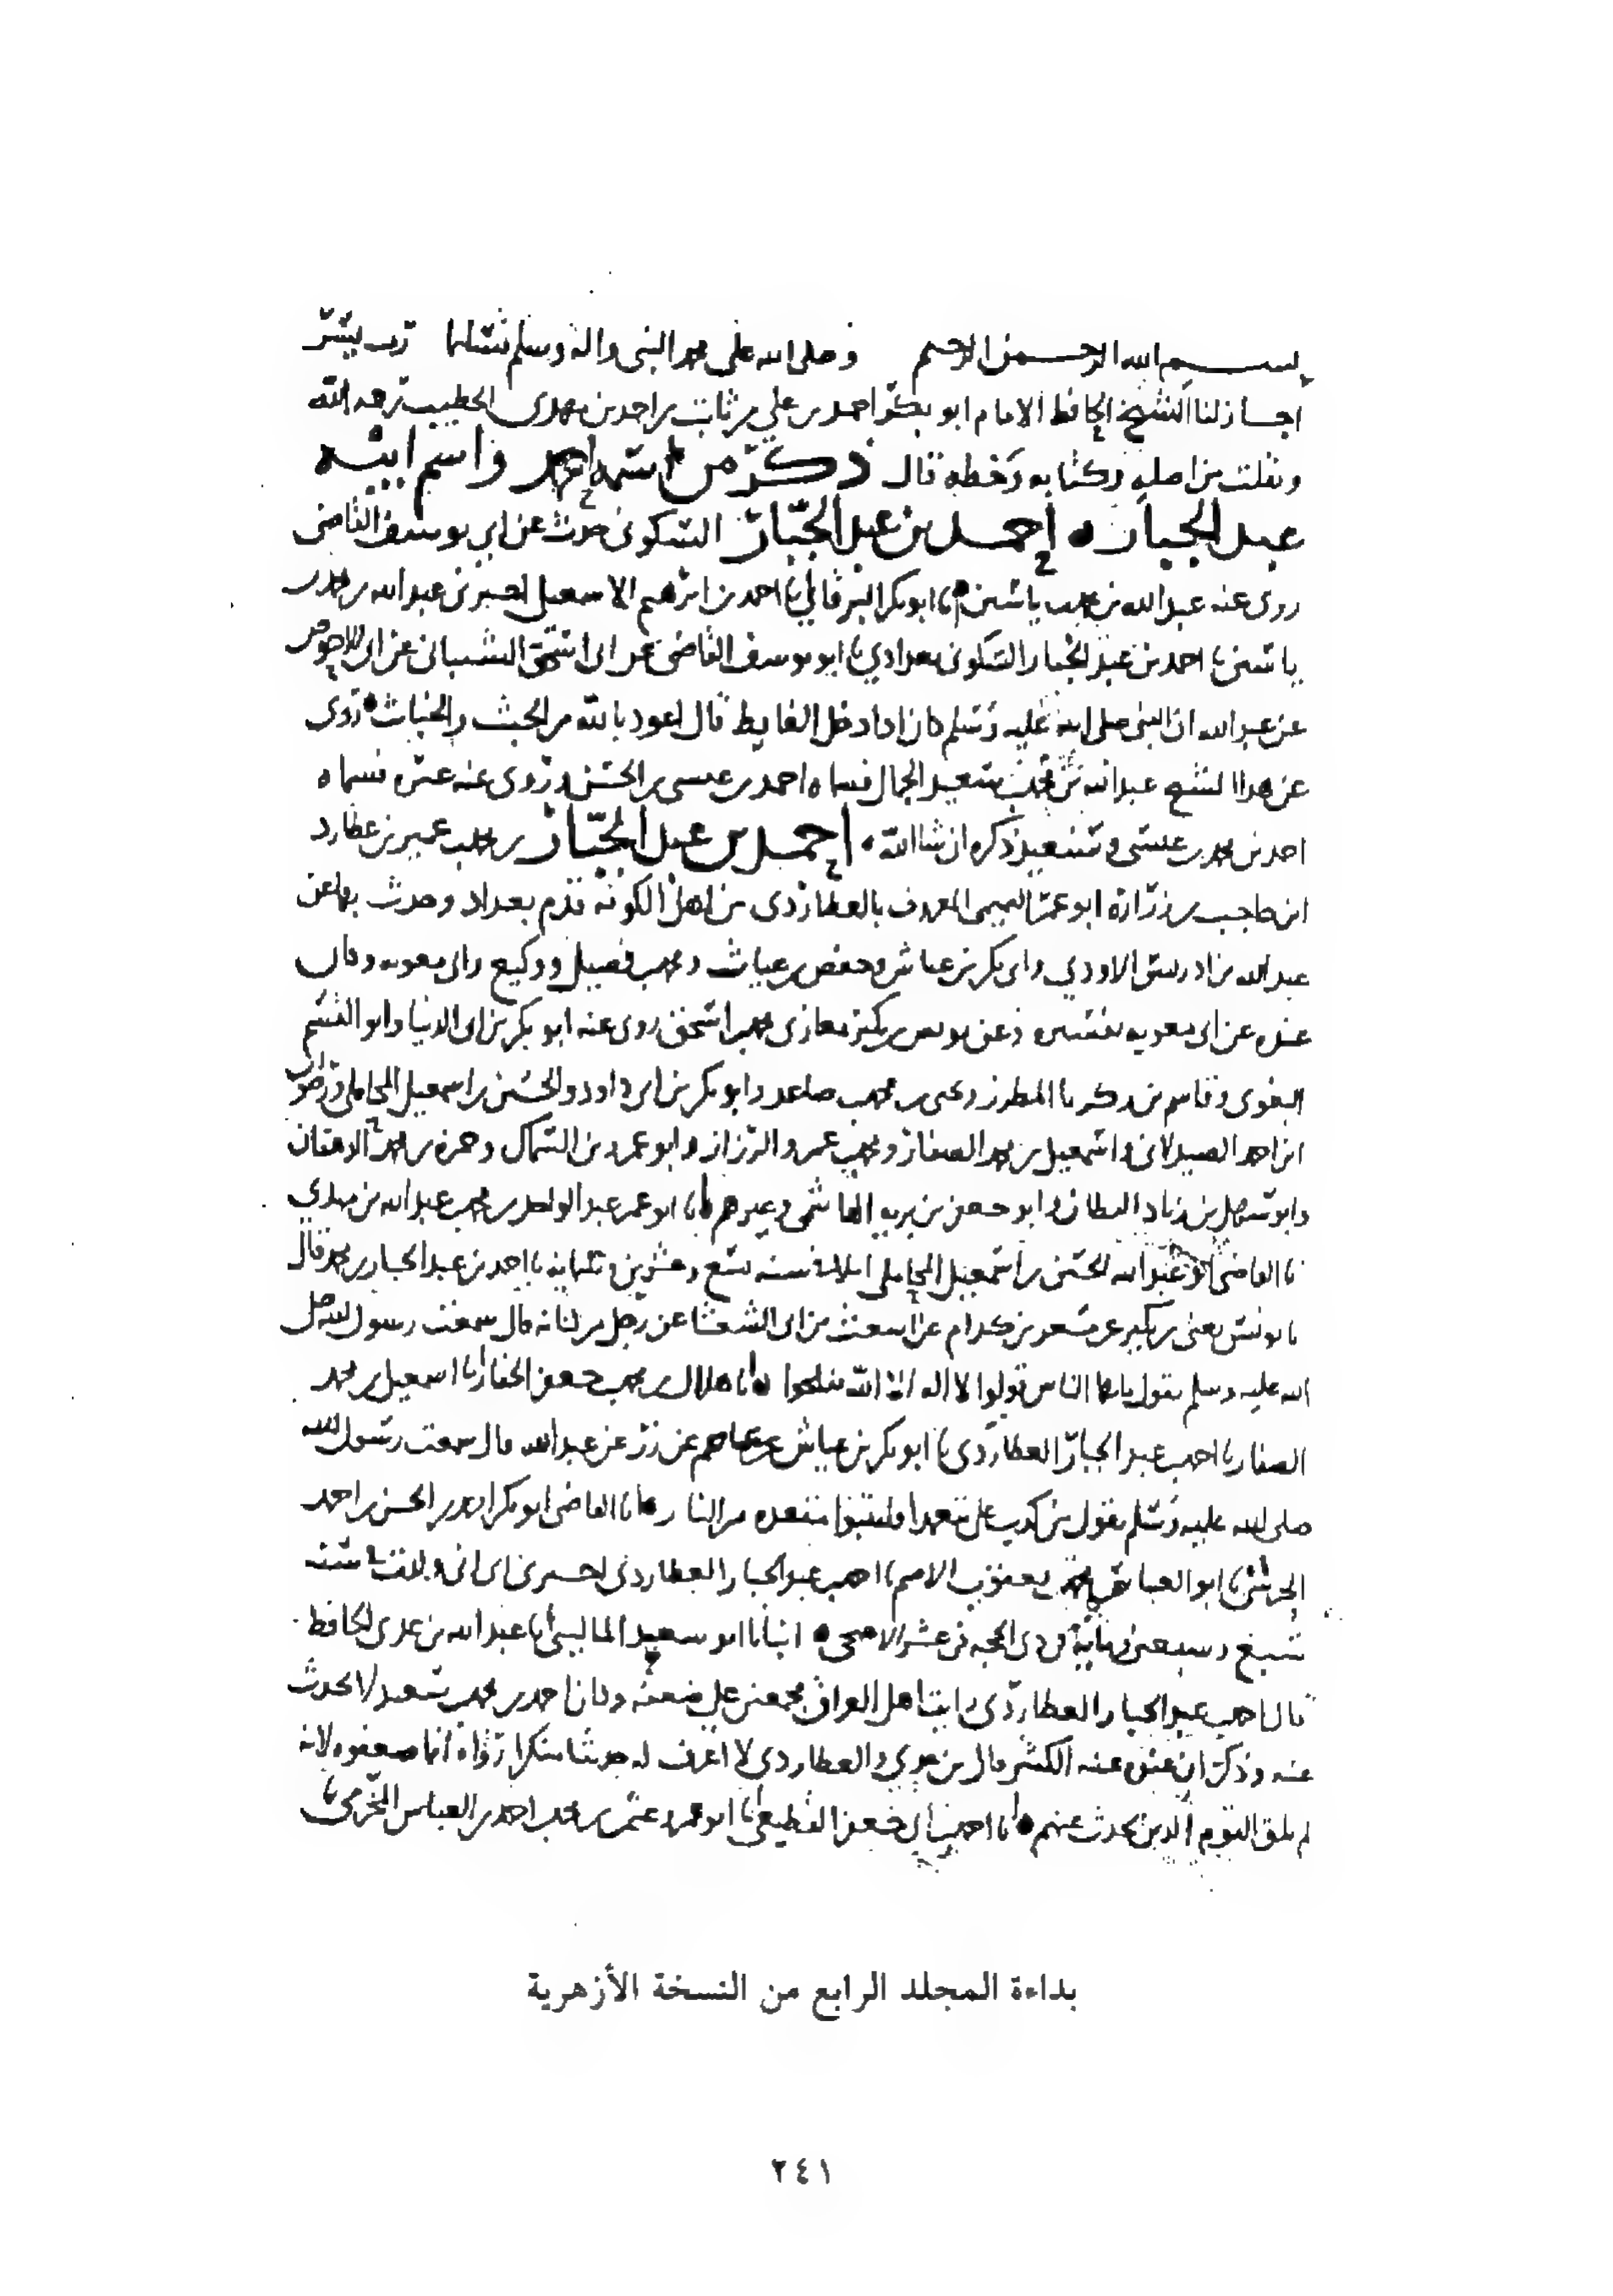 بسم الله الرحمن الرحيم وصلى الله على محمد النبي واله وسلم تسليما رب يسر
اجاز لنا الشيخ الحافظ الامام ابو بكر احمد بن علي بن ثابت بن احمد بن مهدي الخطيب رحمه الله
ونقلت من اصله وكتابه وخطه قال ذكر من اسمه احمد واسم ابيه
عبد الجبار احمد بن عبد الجبار السكوني حدث عن ابي يوسف القاضي
روى عنه عبد الله بن محمد بن ياسين انا ابو بكر البرقاني نا احمد بن ابرهيم الاسمعيلي اخبرني عبد الله بن محمد بن
ياسين نا احمد بن عبد الجبار السكوني بغدادي نا ابو يوسف القاضي عن ابي اسحق الشيباني عن ابي الاحوص
عن عبد الله ان النبي صلى الله عليه وسلم كان اذا دخل الغايط قال اعوذ بالله من الخبث والخباث روى
عن هذا الشيخ عبد الله بن محمد بن سعيد الجمال فسماه احمد بن عيسى بن الحسن وروى عنه غيره فسماه
احمد بن محمد بن عيسى وسنعيد ذكره ان شا الله احمد بن عبد الجبار بن محمد بن عمير بن عطارد
ابن حاجب بن زرارة ابو عمر التميمي المعروف بالعطاردي من اهل الكوفة قدم بغداد وحدث بها عن
عبد الله بن ادريس الاودي وابي بكر بن عياش وحفص بن غياث ومحمد بن فضيل ووكيع وابي معويه وكان
عنده عن ابي معويه تفسيره وعن يونس بن بكير مغازي محمد بن اسحق روى عنه ابو بكر بن ابي الدنيا وابو القسم
البغوي وقاسم بن زكريا المطرز ويحيى بن محمد بن صاعد وابو بكر بن ابي داود والحسين بن اسمعيل المحاملي ورضوان
ابن احمد الصيدلاني واسمعيل بن محمد الصفار ومحمد بن عمرو الرزاز وابو عمرو بن السماك وحمزه بن محمد الدهقان
وابو سهل بن زياد القطان وابو جعفر بن بريه الهاشمي وغيرهم انا ابو عمر عبد الواحد بن محمد بن عبد الله بن مهدي
نا القاضي ابو عبد الله الحسين بن اسمعيل المحاملي املا في سنه تسع وعشرين وثلثمايه نا احمد بن عبد الجبار بن محمد قال
نا يونس يعني بن بكير عن مسعر بن كدام عن اشعث بن ابي الشعثا عن رجل من كنانه قال سمعت رسول الله صلى
الله عليه وسلم يقول يا ايها الناس قولوا لا اله الا الله تفلحوا انا هلال بن محمد بن جعفر الحفار انا اسمعيل بن محمد
الصفار نا احمد بن عبد الجبار العطاردي نا ابو بكر بن عياش عن عاصم عن زر عن عبد الله قال سمعت رسول الله
صلى الله عليه وسلم يقول من كذب علي متعمدا فليتبوا مقعده من النار نا القاضي ابو بكر احمد بن الحسن بن احمد
الحرشي نا ابو العباس محمد بن يعقوب الاصم نا احمد بن عبد الجبار العطاردي اخبرني ابي اني ولدت سنة
سبع وسبعين ومايه في ذي الحجه في عشر الاضحى انبانا ابو سعيد الماليني انا عبد الله بن عدي الحافظ
قال احمد بن عبد الجبار العطاردي رايت اهل العراق مجمعين على ضعفه وكان احمد بن محمد بن سعيد لا يحدث
عنه وذكر ان عنده عنه الكثير قال بن عدي والعطاردي لا اعرف له حديثا منكرا رواه انما ضعفوه لانه
لم يلق القوم الذين يحدث عنهم انا احمد بن ابي جعفر القطيعي انا ابو عمرو عثمن بن محمد بن احمد بن العباس المخرمي نا
بداءة المجلد الرابع من النسخة الأزهرية
٢٤١